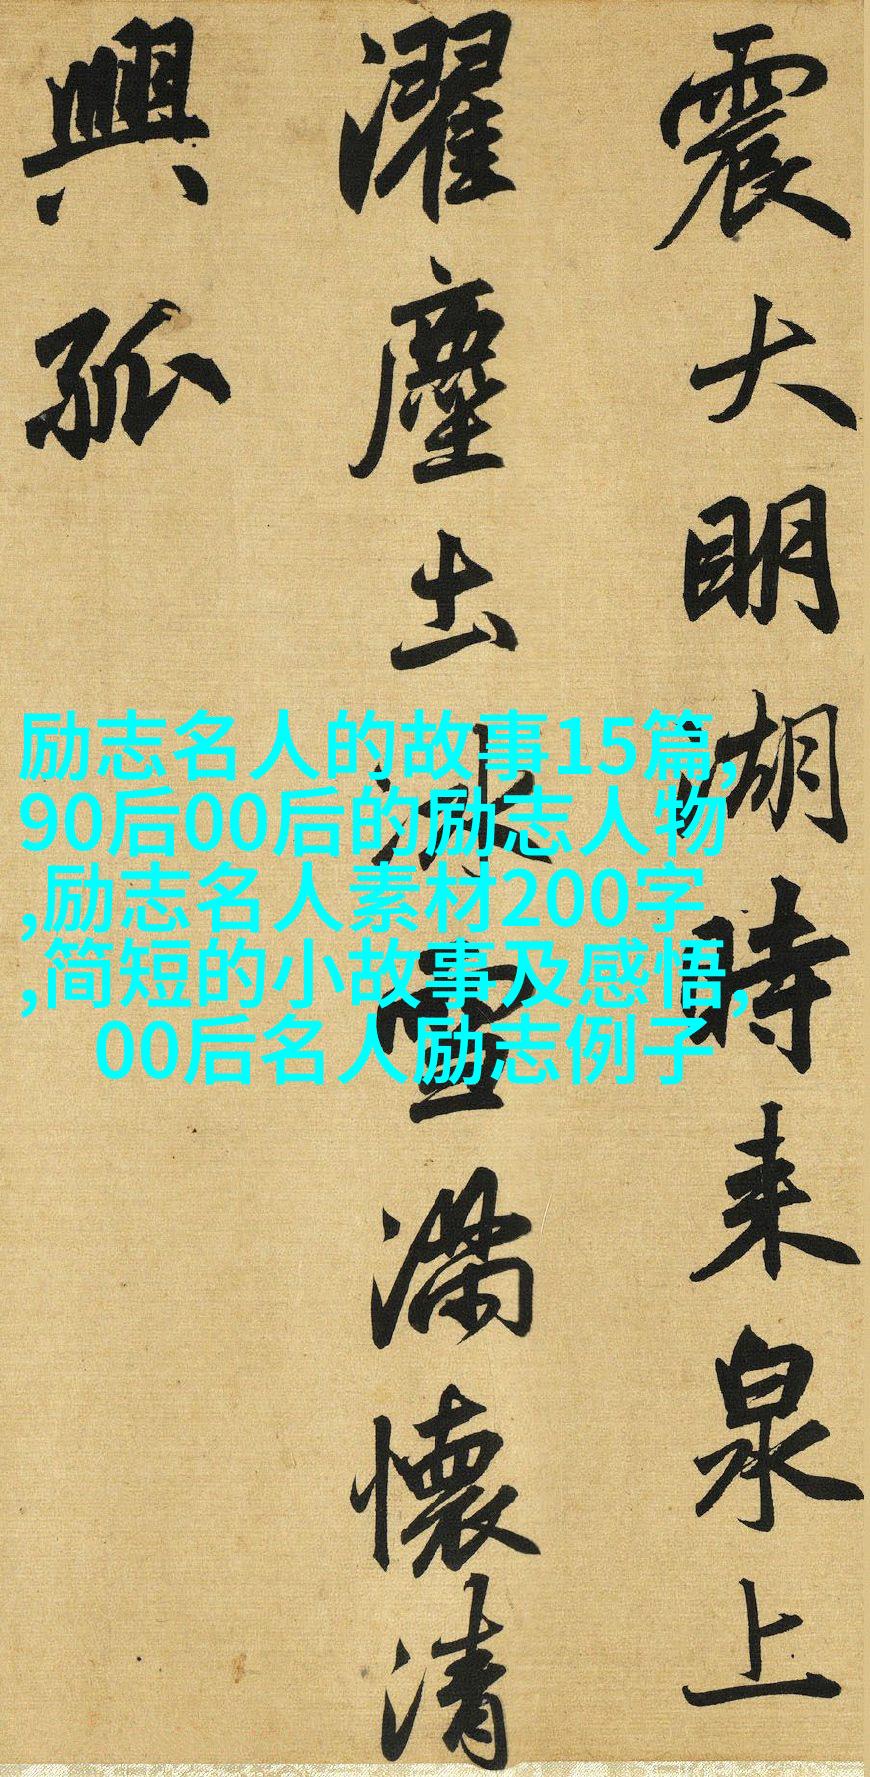 震大明湖時来泉上
濯塵出冰雪滿懷清
興孤
励志名人的故事15篇,
90后00后的励志人物
,励志名人素材200字
,简短的小故事及感悟,
00后名人励志例子